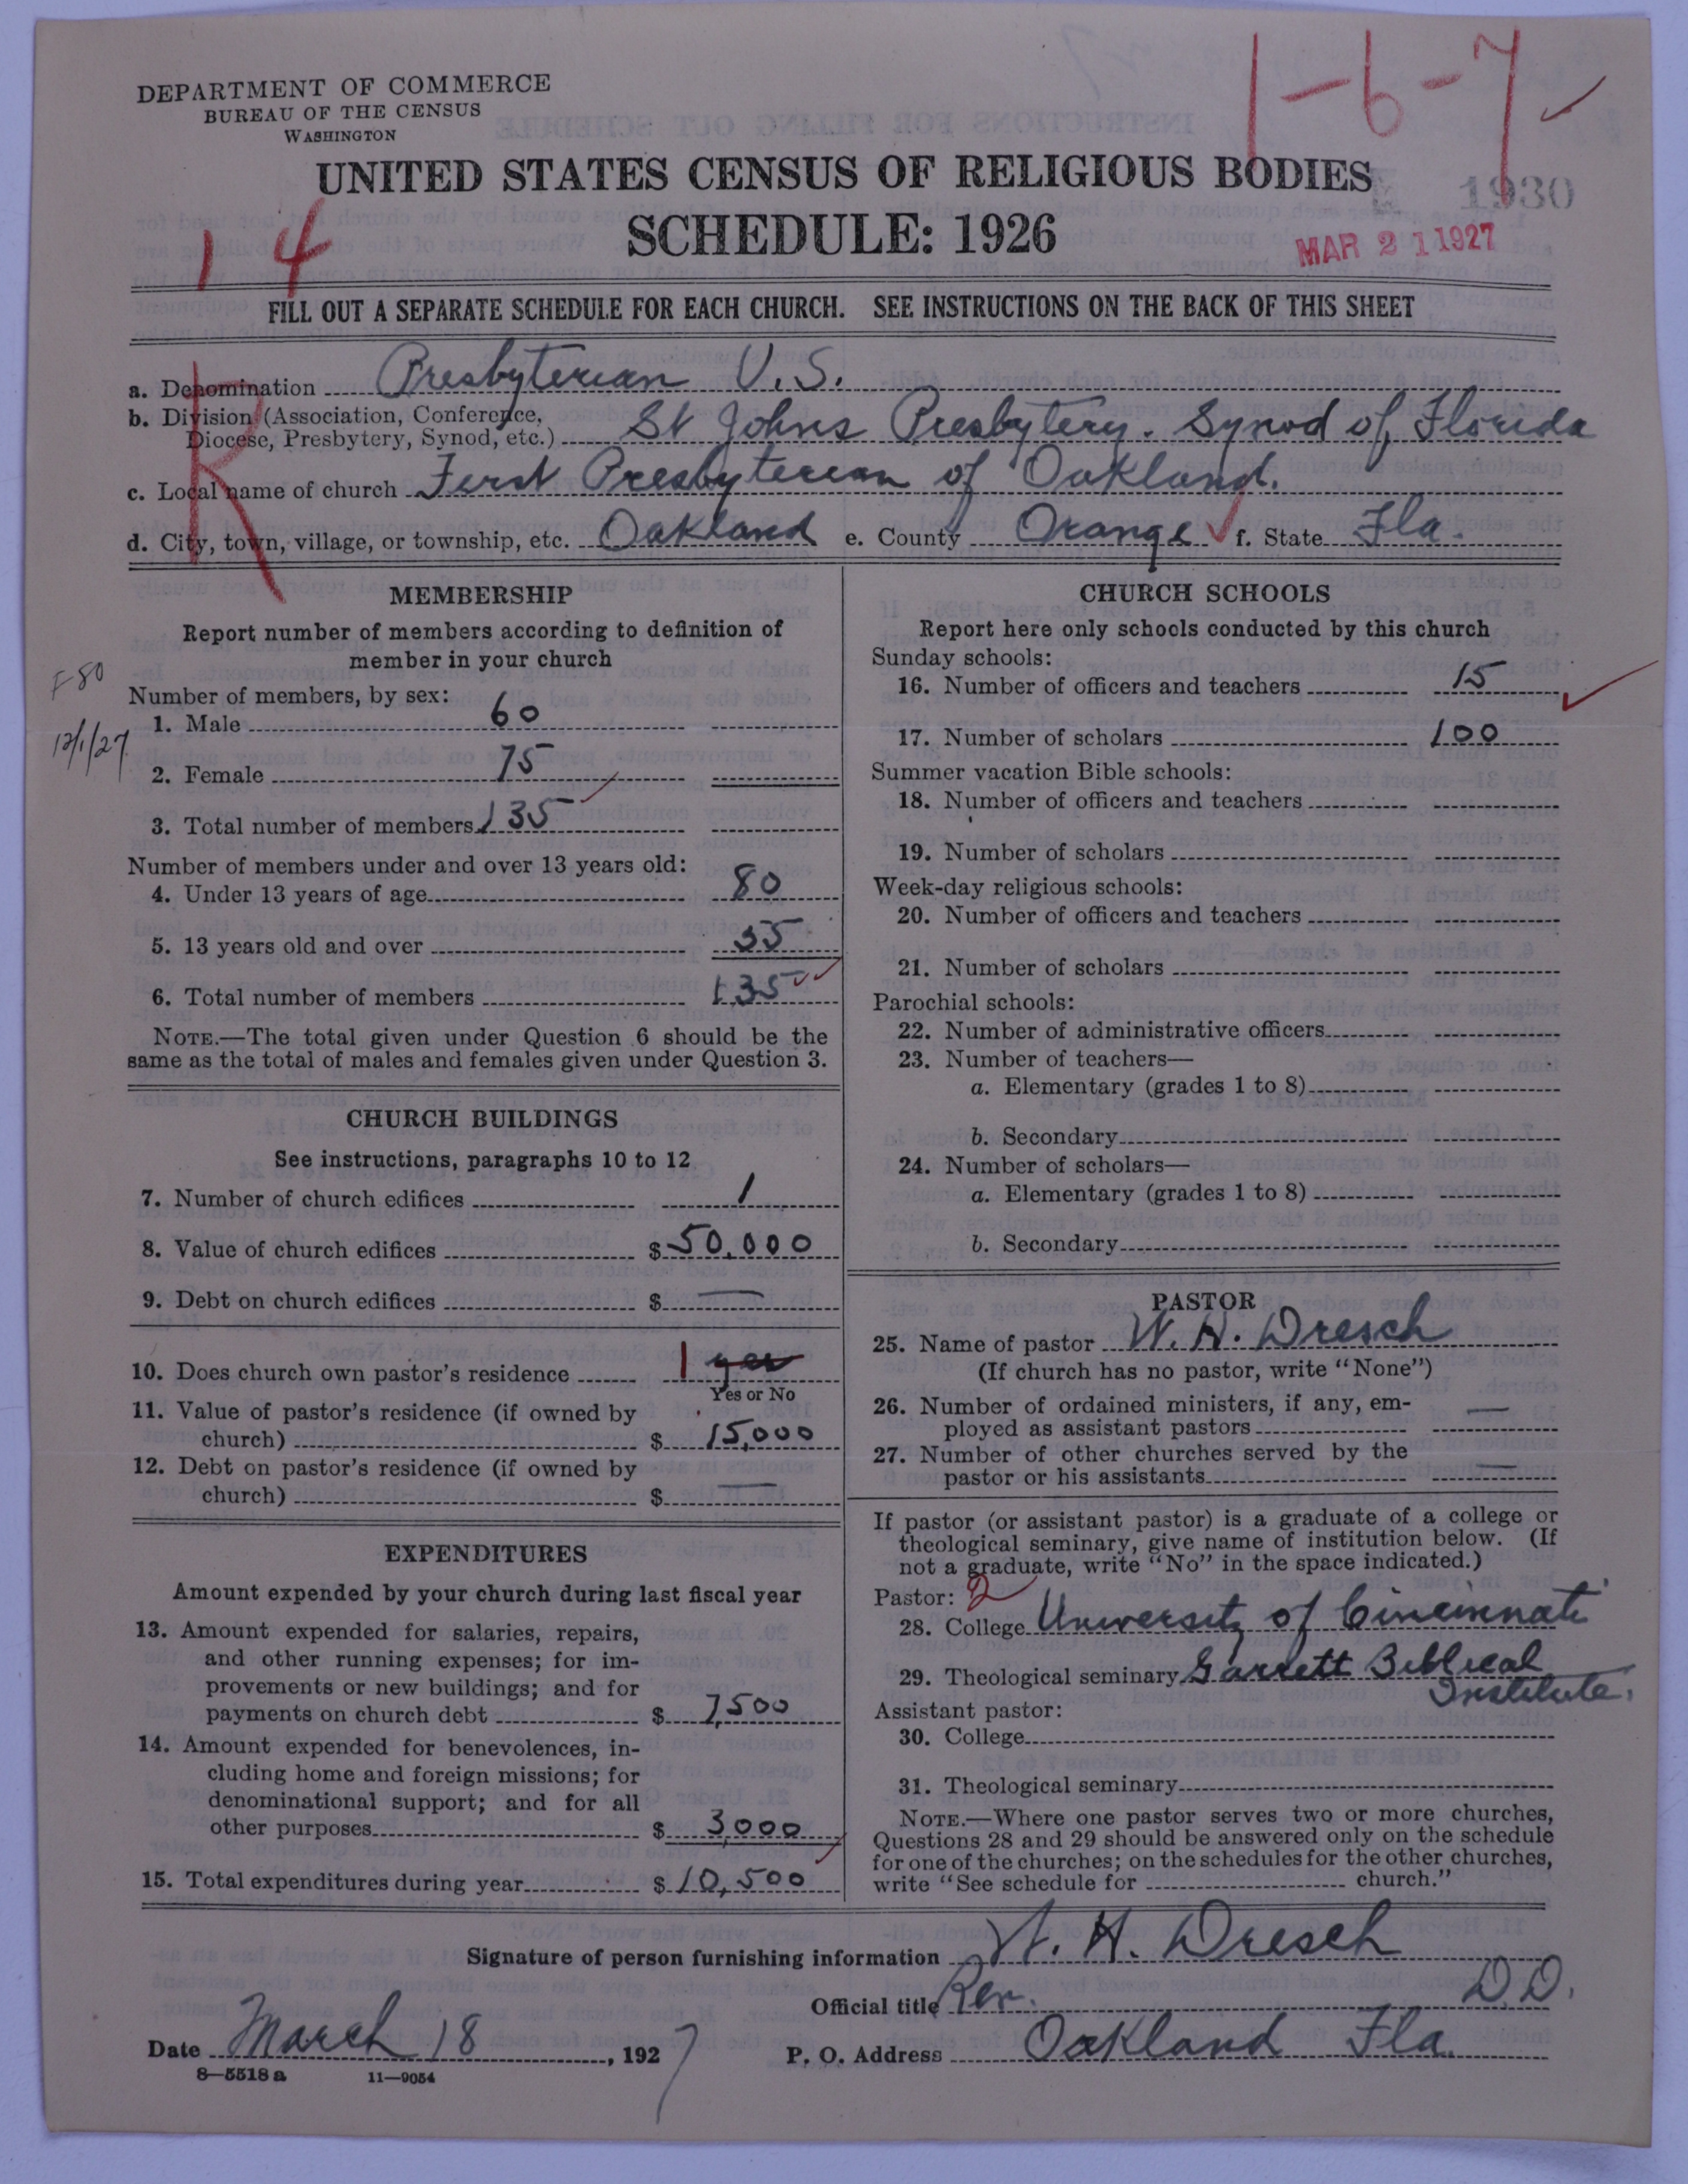 1-6-7
DEPARTMENT OF COMMERCE
BUREAU OF THE CENSUS
WASHINGTON
UNITED STATES CENSUS OF RELIGIOUS BODIES
1930
SCHEDULE: 1926
MAR 21 1927
1 4
FILL OUT A SEPARATE SCHEDULE FOR EACH CHURCH. SEE INSTRUCTIONS ON THE BACK OF THIS SHEET
K
a. Denomination Presbyterian U.S.
b. Division (Association, Conference,
Diocese, Presbytery, Synod, etc.) St Johns Presbytery. Synod of Florida
c. Local name of church First Presbyterian of Oakland.
d. City, town, village, or township, etc. Oakland e. County Orange f. State Fla.
MEMBERSHIP
Report number of members according to definition of
member in your church
F-80
12/1/27
Number of members, by sex:
1. Male 60
2. Female 75
3. Total number of members 135
Number of members under and over 13 years old:
4. Under 13 years of age 80
5. 13 years old and over 55
6. Total number of members 135
NOTE.—The total given under Question 6 should be the
same as the total of males and females given under Question 3.
CHURCH BUILDINGS
See instructions, paragraphs 10 to 12
7. Number of church edifices 1
8. Value of church edifices $ 50,000
9. Debt on church edifices $ —
10. Does church own pastor's residence 1 yes
Yes or No
11. Value of pastor's residence (if owned by
church) $ 15,000
12. Debt on pastor's residence (if owned by
church) $ —
EXPENDITURES
Amount expended by your church during last fiscal year
13. Amount expended for salaries, repairs,
and other running expenses; for im-
provements or new buildings; and for
payments on church debt $ 7,500
14. Amount expended for benevolences, in-
cluding home and foreign missions; for
denominational support; and for all
other purposes $ 3,000
15. Total expenditures during year $ 10,500
CHURCH SCHOOLS
Report here only schools conducted by this church
Sunday schools:
16. Number of officers and teachers 15
17. Number of scholars 100
Summer vacation Bible schools:
18. Number of officers and teachers
19. Number of scholars
Week-day religious schools:
20. Number of officers and teachers
21. Number of scholars
Parochial schools:
22. Number of administrative officers
23. Number of teachers—
a. Elementary (grades 1 to 8)
b. Secondary
24. Number of scholars—
a. Elementary (grades 1 to 8)
b. Secondary
PASTOR
25. Name of pastor W. H. Dresch
(If church has no pastor, write "None")
26. Number of ordained ministers, if any, em-
ployed as assistant pastors —
27. Number of other churches served by the
pastor or his assistants —
If pastor (or assistant pastor) is a graduate of a college or
theological seminary, give name of institution below. (If
not a graduate, write "No" in the space indicated.)
Pastor: 2
28. College University of Cincinnati
29. Theological seminary Garrett Biblical
Institute.
Assistant pastor:
30. College
31. Theological seminary
NOTE.—Where one pastor serves two or more churches,
Questions 28 and 29 should be answered only on the schedule
for one of the churches; on the schedules for the other churches,
write "See schedule for church."
Signature of person furnishing information W. H. Dresch
Official title Rev. D.D.
Date March 18, 1927 P. O. Address Oakland Fla.
8—5518 a 11—9054